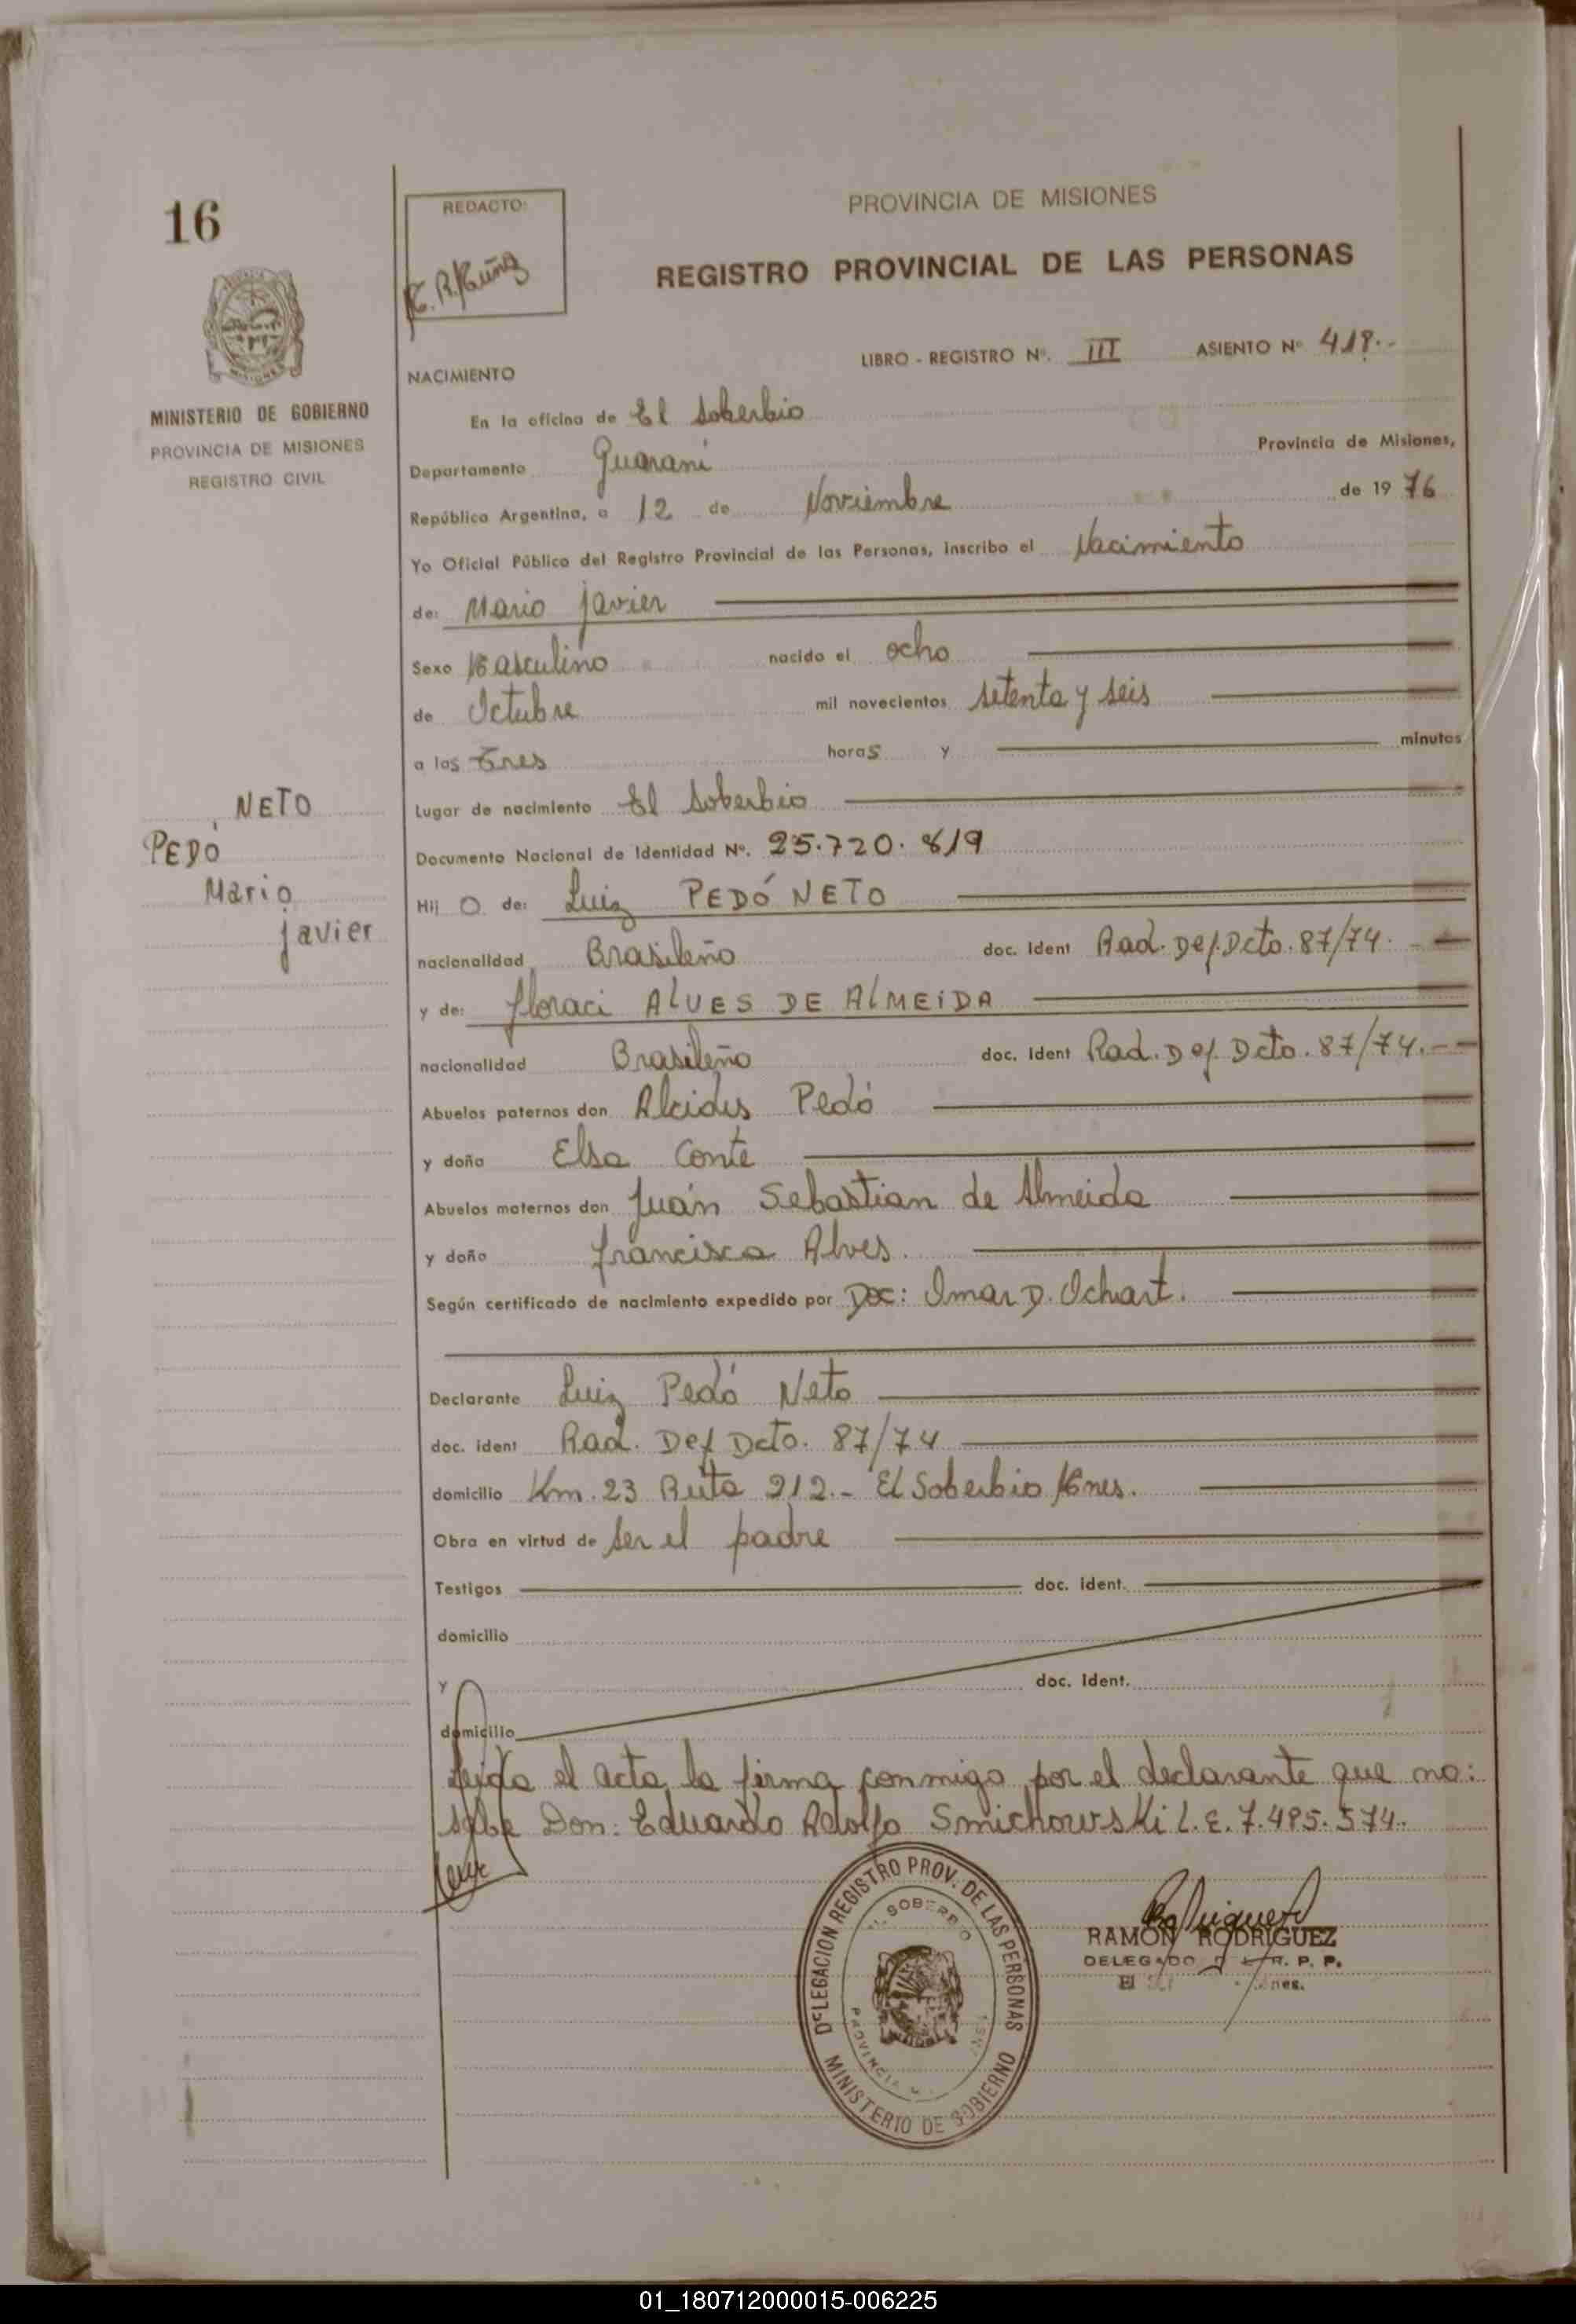 16
MINISTERIO DE GOBIERNO
PROVINCIA DE MISIONES
REGISTRO CIVIL
NETO
PEDÓ
Mario
Javier
REDACTO:
PROVINCIA DE MISIONES
REGISTRO PROVINCIAL DE LAS PERSONAS
LIBRO - REGISTRO Nº. III ASIENTO Nº 418.-
NACIMIENTO
En la oficina de El Soberbio
Departamento Guaraní Provincia de Misiones,
República Argentina, a 12 de Noviembre de 1976
Yo Oficial Público del Registro Provincial de las Personas, inscribo el Nacimiento
de: Mario Javier
Sexo Masculino nacido el ocho
de Octubre mil novecientos setenta y seis
a las Tres horas y minutos
Lugar de nacimiento El Soberbio
Documento Nacional de Identidad Nº. 25.720.819
Hijo de: Luiz PEDÓ NETO
nacionalidad Brasileño doc. ident Rad. Def. Dcto. 87/74.-
y de: Floraci ALVES DE ALMEIDA
nacionalidad Brasileño doc. ident Rad. Def. Dcto. 87/74.--
Abuelos paternos don Alcides Pedó
y doña Elsa Conte
Abuelos maternos don Juán Sebastian de Almeida
y doña Francisca Alves.
Según certificado de nacimiento expedido por Doc: Omar D. Ochart.
Declarante Luiz Pedó Neto
doc. ident Rad. Def Dcto. 87/74
domicilio Km. 23 Ruta 212.- El Soberbio Mnes.
Obra en virtud de ser el padre
Testigos doc. ident.
domicilio
y doc. ident.
domicilio
Leida el acta la firma conmigo por el declarante que no:
sabe Don: Eduardo Adolfo Smichowski L.E. 7.485.574.
DELEGACION REGISTRO PROV. DE LAS PERSONAS
EL SOBERBIO
PROVINCIA
MINISTERIO DE GOBIERNO
RAMON RODRIGUEZ
DELEGADO R. P. P.
01_180712000015-006225